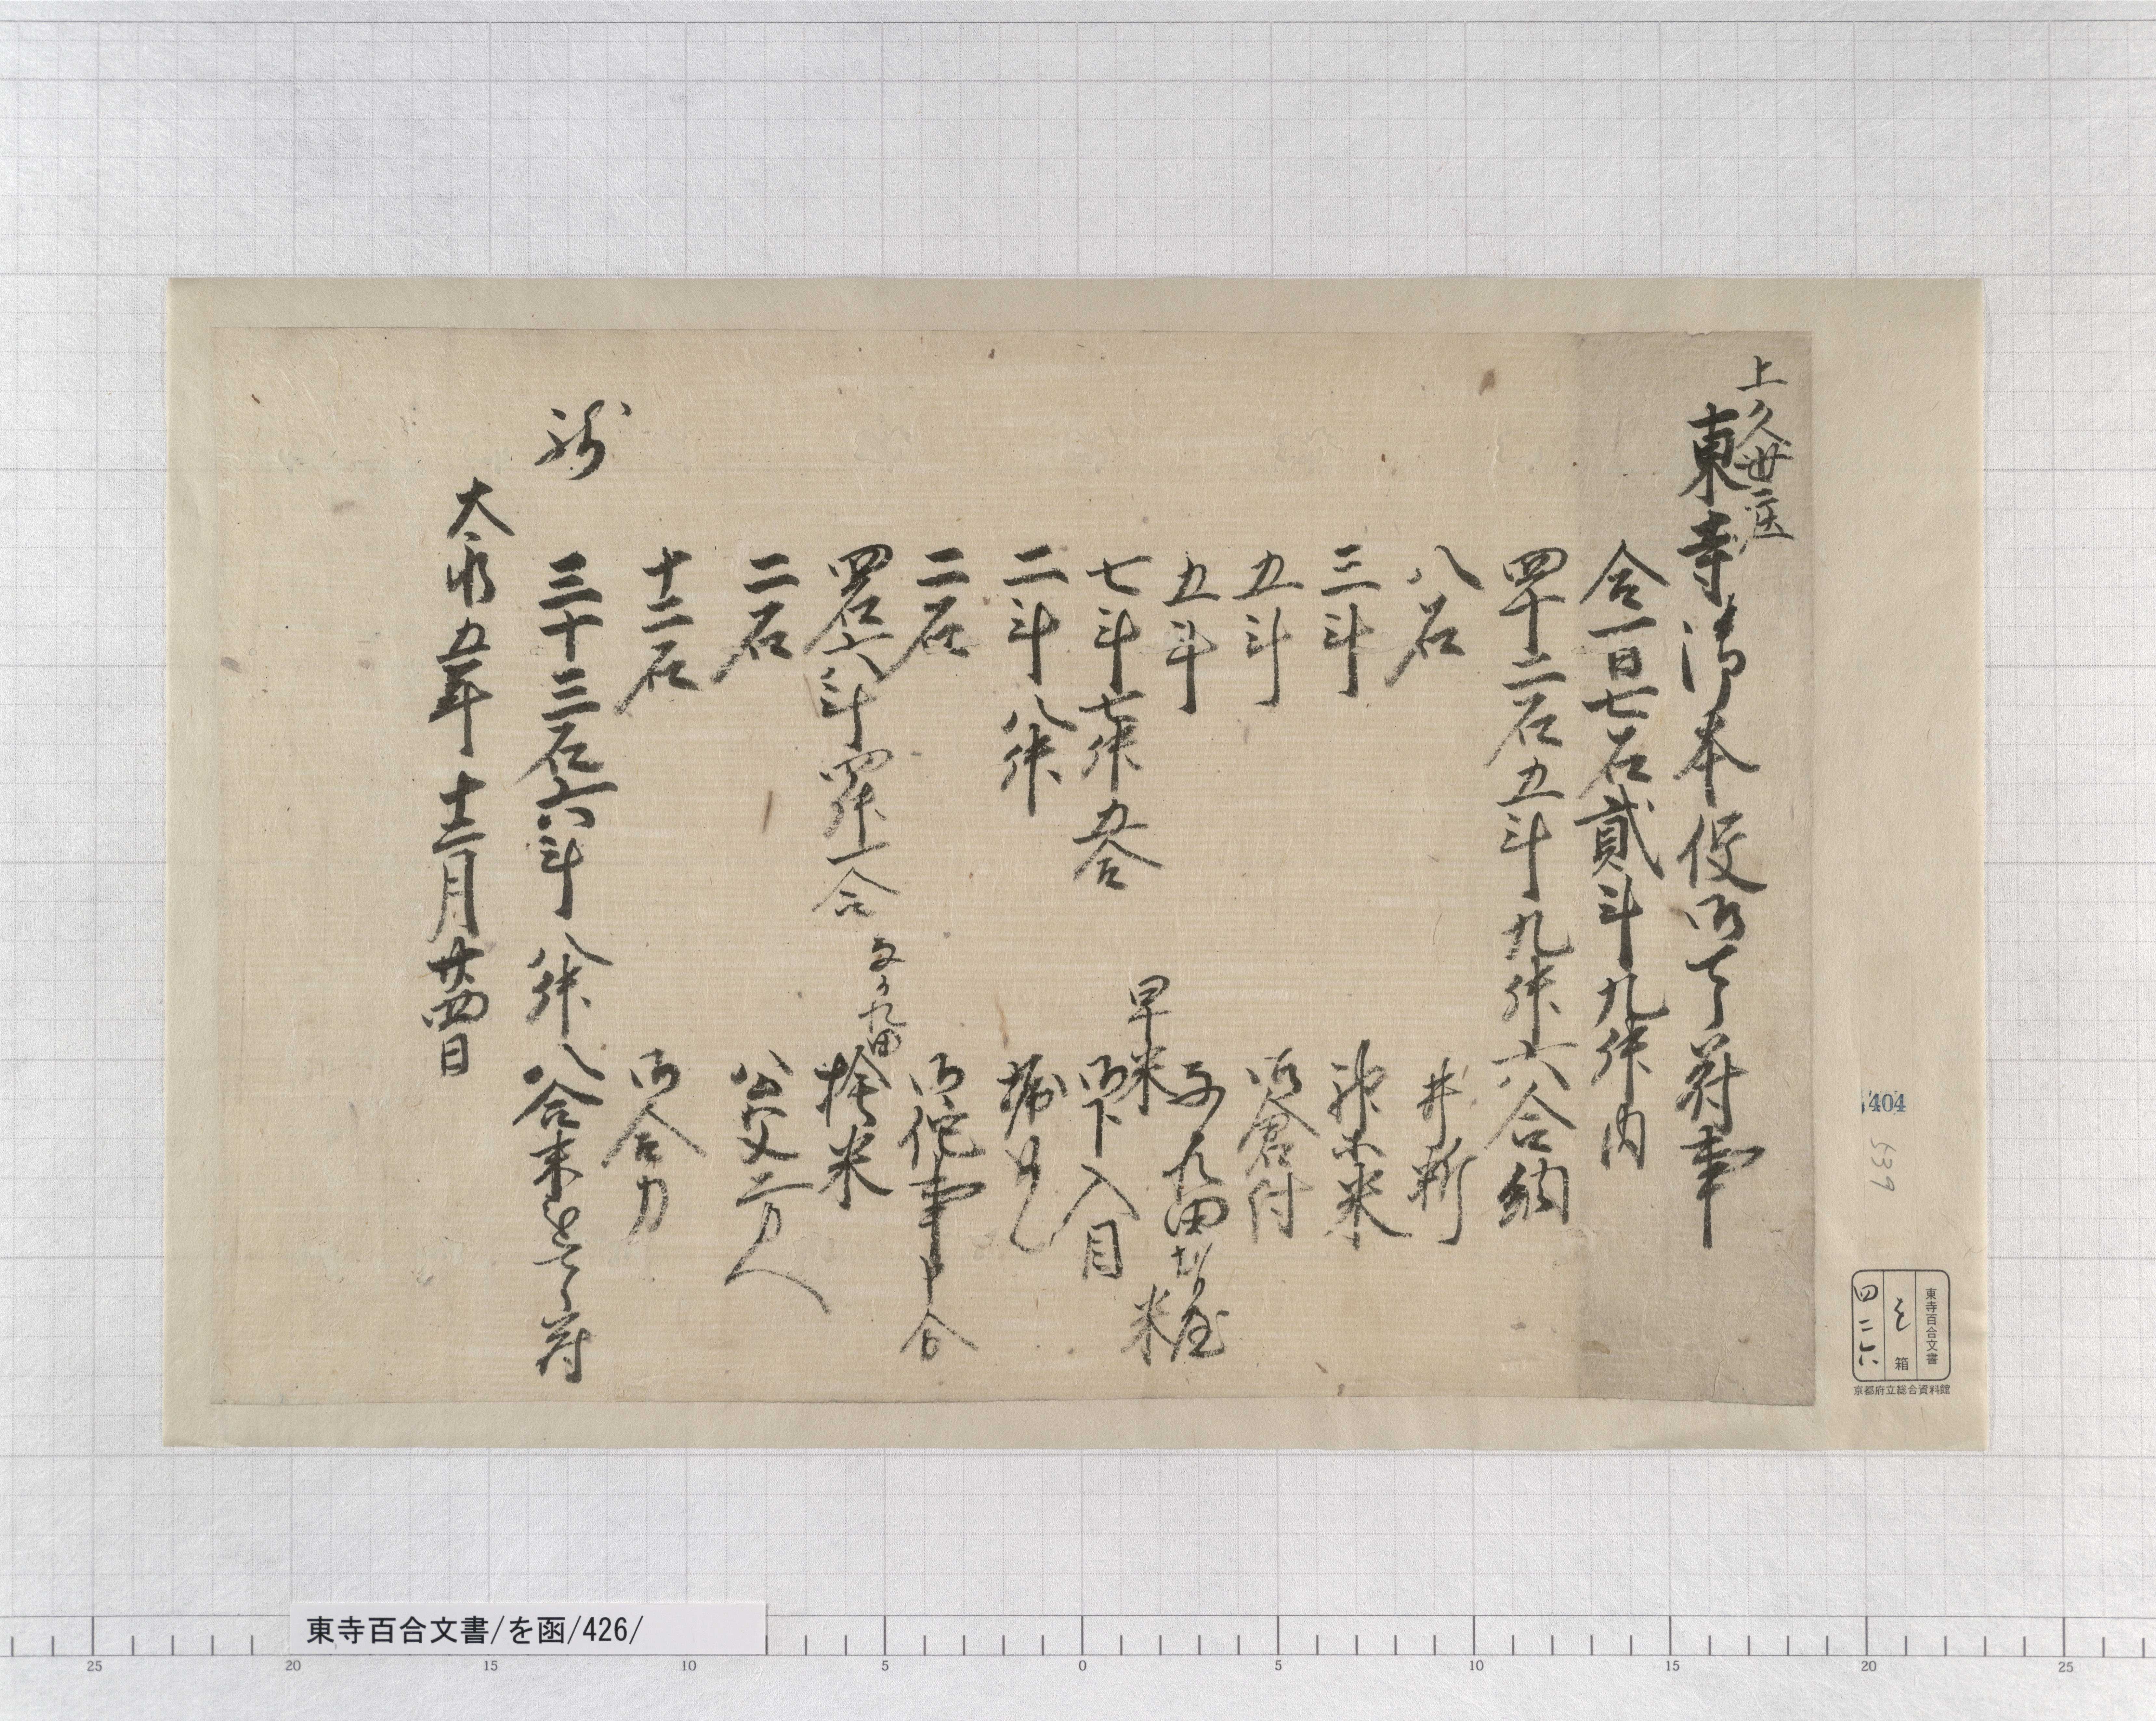 上久世庄
東寺御本役御了簡事
合一百七石貳斗九升内
四十二石五斗九升六合納
八石 井料
三斗 米
五斗 御倉付
五斗 九田 米
七斗七升五合 早米 御下入目
二斗八升
二石 御佗事申合
四石六斗四升一合 九田 捨米
二石 公文二方へ
十二石 御合力
三十三石六斗八升八合未
大永五年十二月廿四日
404
539
東寺百合文書
を箱
四二六
京都府立総合資料館
東寺百合文書/を函/426/
25 20 15 10 5 0 5 10 15 20 25